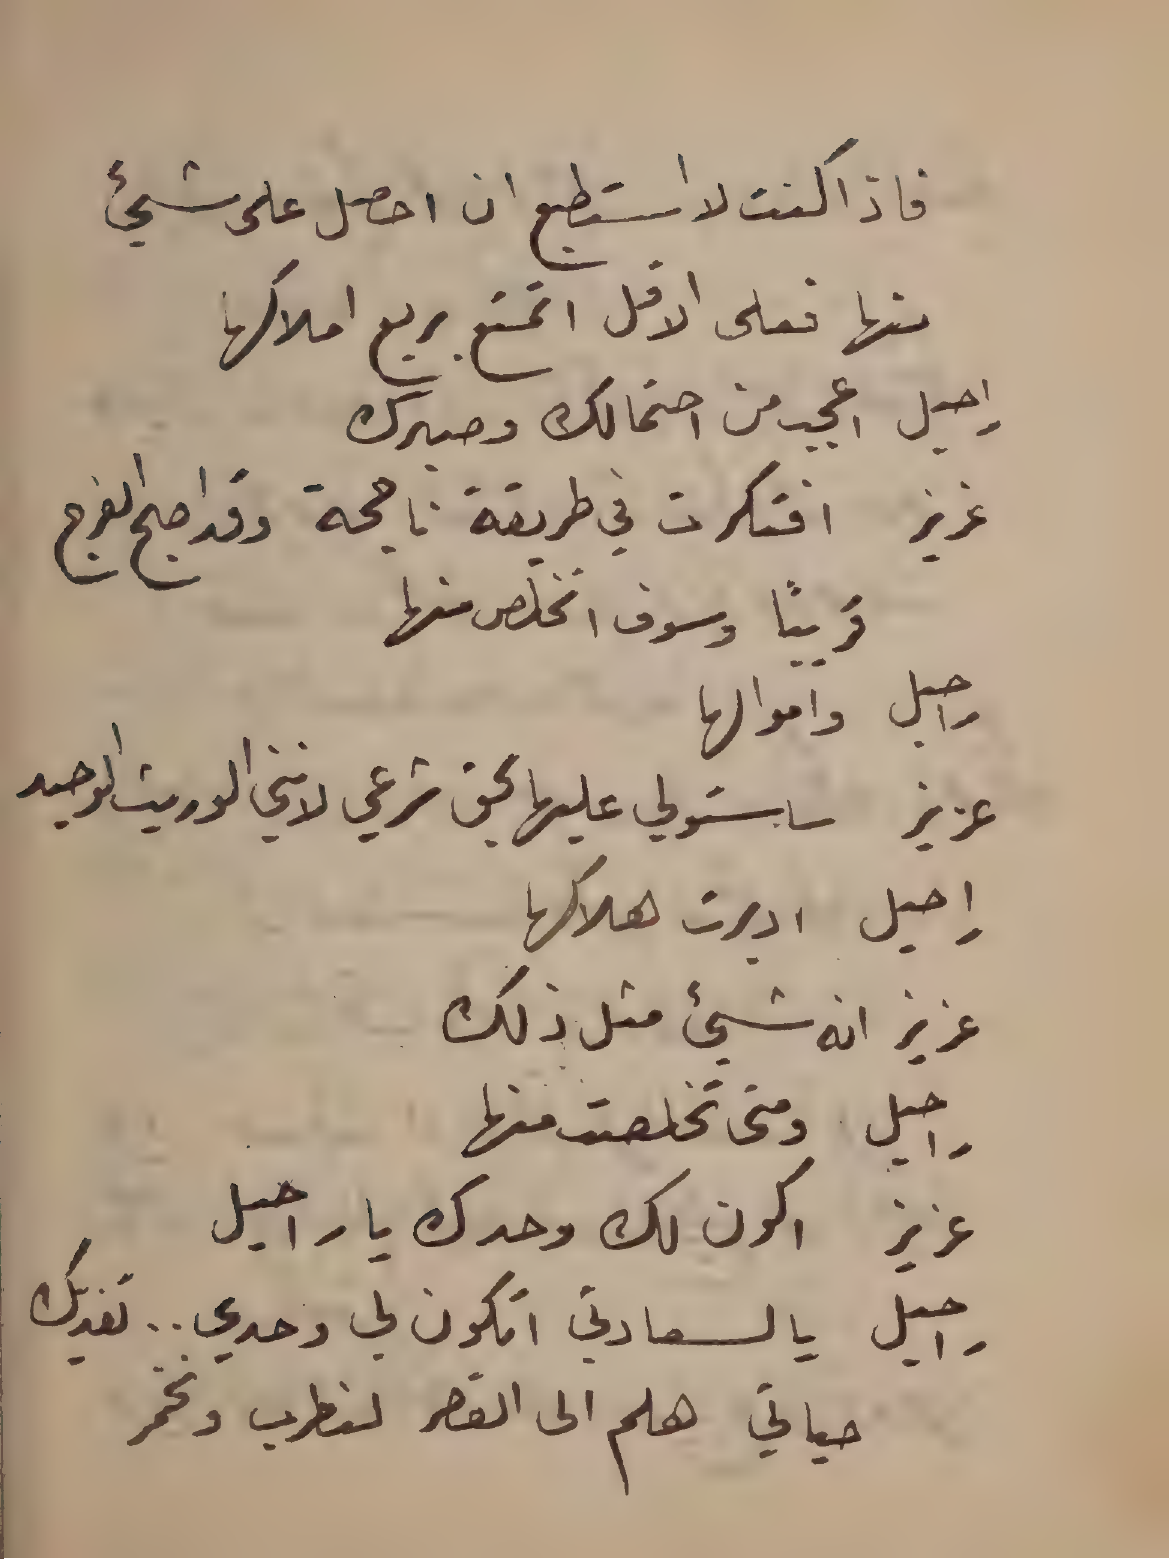 فاذا كنت لا استطيع ان احصل على شيئ
منها فعلى الاقل اتمتع بريع املاكها
راحيل اعجب من احتمالك وصبرك
عزيز افتكرت في طريقة ناجحة وقد اصبح الفرج
قريبًا وسوف اتخلص منها
راحيل واموالها
عزيز ساستولي عليها بحق شرعي لانني الوريث الوحيد
راحيل ادبرت هلاكها
عزيز انه شيئ مثل ذلك
راحيل ومتى تخلصت منها
عزيز اكون لك وحدك يا راحيل
راحيل يا لسعادتي اتكون لي وحدي .. تفديك
حياتي هلم الى القصر لنطرب ونخمر